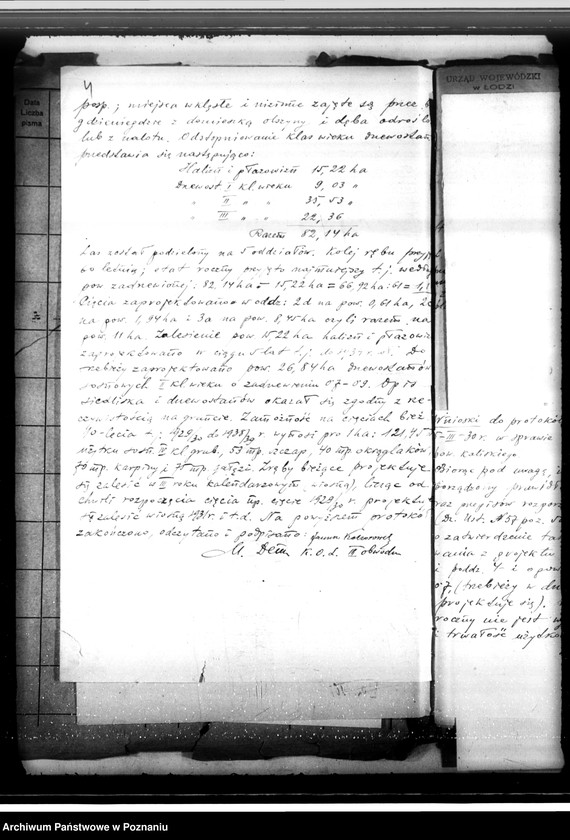 4
posp; miejsca wklęsłe i nizinne zajęte są przez
gdzieniegdzie z domieszką olszyny i dęba odrośl
lub z nalotu. Odstopniowanie klas wieku drzewostan
przedstawia się następująco:
Halizn i płazowizn 15,22 ha
Drzewost I kl. wieku 9,03 "
" II " " 35,53 "
" III " " 22,36
Razem 82,14 ha
Las został podzielony na 5 oddziałów. Kolej rębu przyj
60 letnią; etat roczny przyjęto najmniejszy t.j. według
pow zadrzewionej: 82,14 ha - 15,22 ha = 66,92 ha : 61 = 1,1
Cięcia zaprojektowano w oddz: 2d na pow. 0,61 ha, 2c
na pow. 1,94 ha i 3a na pow. 8,45 ha czyli razem na
pow. 11 ha. Zalesienie pow 15,22 ha halizn i płazowizn
zaprojektowano w ciągu 5 lat t.j. do
trzebieży zaprojektowano pow. 26,84 ha drzewostanów
sosnowych II kl. wieku o zadrzewieniu 0,7-0,9. Opis
siedliska i drzewostanów okazał się zgodny z rze-
czywistością na gruncie. Zamożność na cięciach bież
10-lecia t.j. 1929/30 do 1938/39 r. wynosi pro 1 ha: 121,45
użytku sosn. II kl grub, 53 mp. szczap, 40 mp okrąglaków,
70 mp. karpiny i 75 mp. gałęzi. Zręby bieżące projektuje
się zalesić w II roku kalendarzowym (wiosną), licząc od
chwili rozpoczęcia cięcia np. cięcie 1929/30 r. projektuje
się zalesić wiosną 1931 r. i t.d. Na powyższem protokół
zakończono, odczytano i podpisano:
M. Dehn K.O.L. III obwodu
Data
Liczba
pisma
URZĄD WOJEWÓDZKI
w ŁODZI
Wnioski do protokółu
5-III-30 r. w sprawie
pow. kaliskiego
Biorąc pod uwagę,
porządzony prawidł
oraz przepisów rozporz
(Dz. Ust. No 57 poz. 5
o zatwierdzenie
wania z projektu
i podd. 4 z
0,7, (trzebieży w
projektuje się).
roczny nie jest
i trwałość użytko
Archiwum Państwowe w Poznaniu